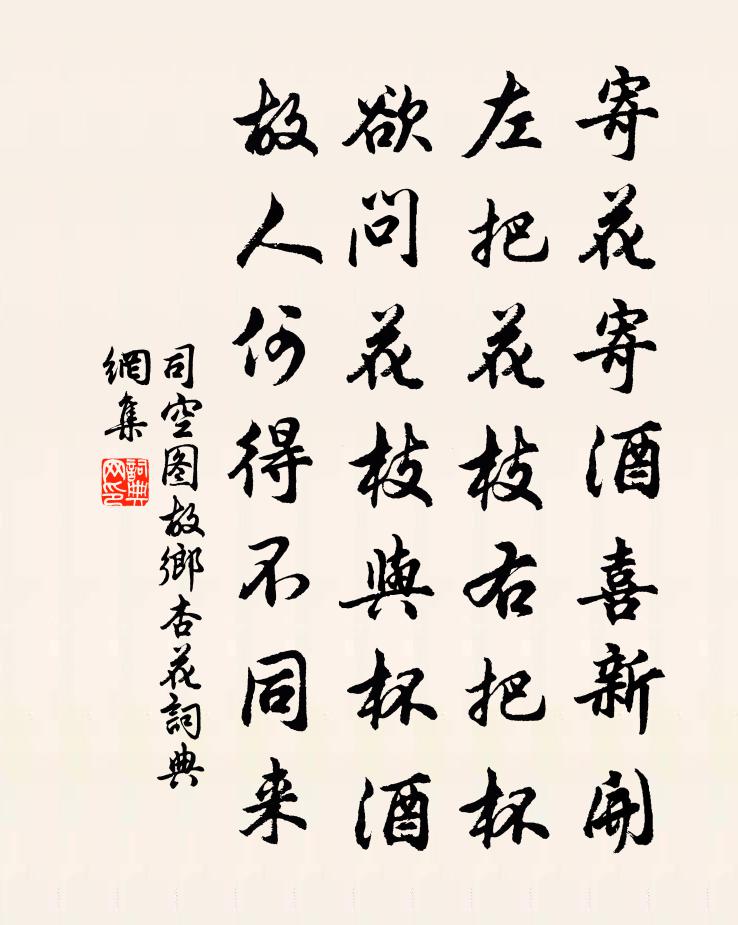 寄花寄酒喜新開
左把花枝右把杯
欲問花枝與杯酒
故人何得不同来
司空图故鄉杏花詞典
網集
詞典
网印